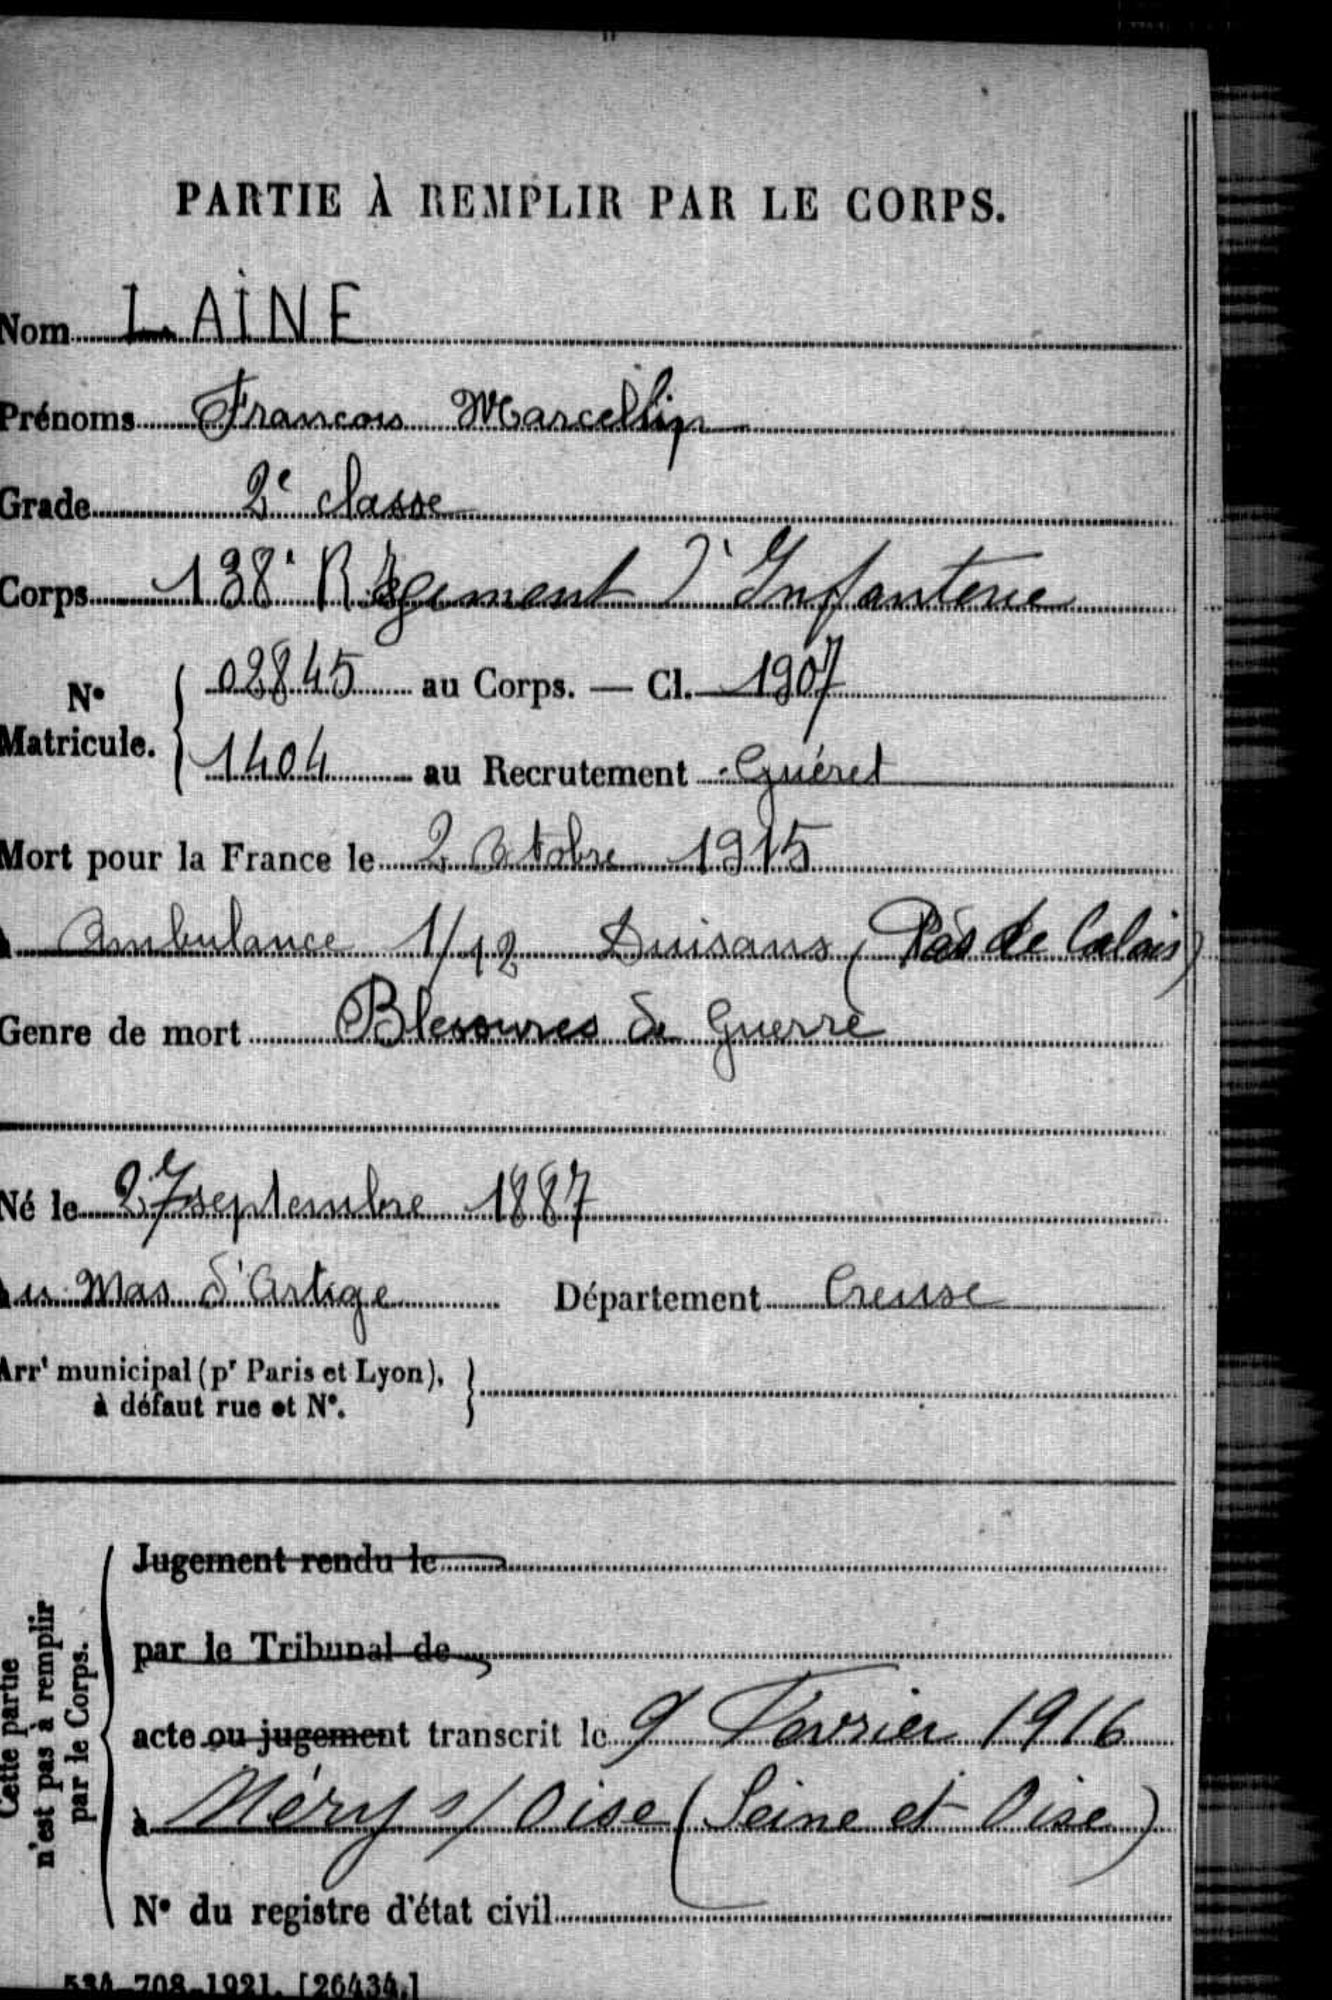 PARTIE À REMPLIR PAR LE CORPS.
Nom LAINE
Prénoms Francois Marcellin
Grade 2e classe
Corps 138e Régiment d'Infanterie
N° Matricule. 02845 au Corps. — Cl. 1907
1404 au Recrutement Guéret
Mort pour la France le 2 Octobre 1915
à Ambulance 1/12 Duisans (Pas de Calais)
Genre de mort Blessures de Guerre
Né le 27 septembre 1887
Au Mas d'Artige Département Creuse
Arrt municipal (pr Paris et Lyon),
à défaut rue et N°.
Cette partie
n'est pas à remplir
par le Corps.
Jugement rendu le
par le Tribunal de
acte ou jugement transcrit le 9 Février 1916
à Méry s/ Oise (Seine et Oise)
N° du registre d'état civil
534-708-1921. [26434.]